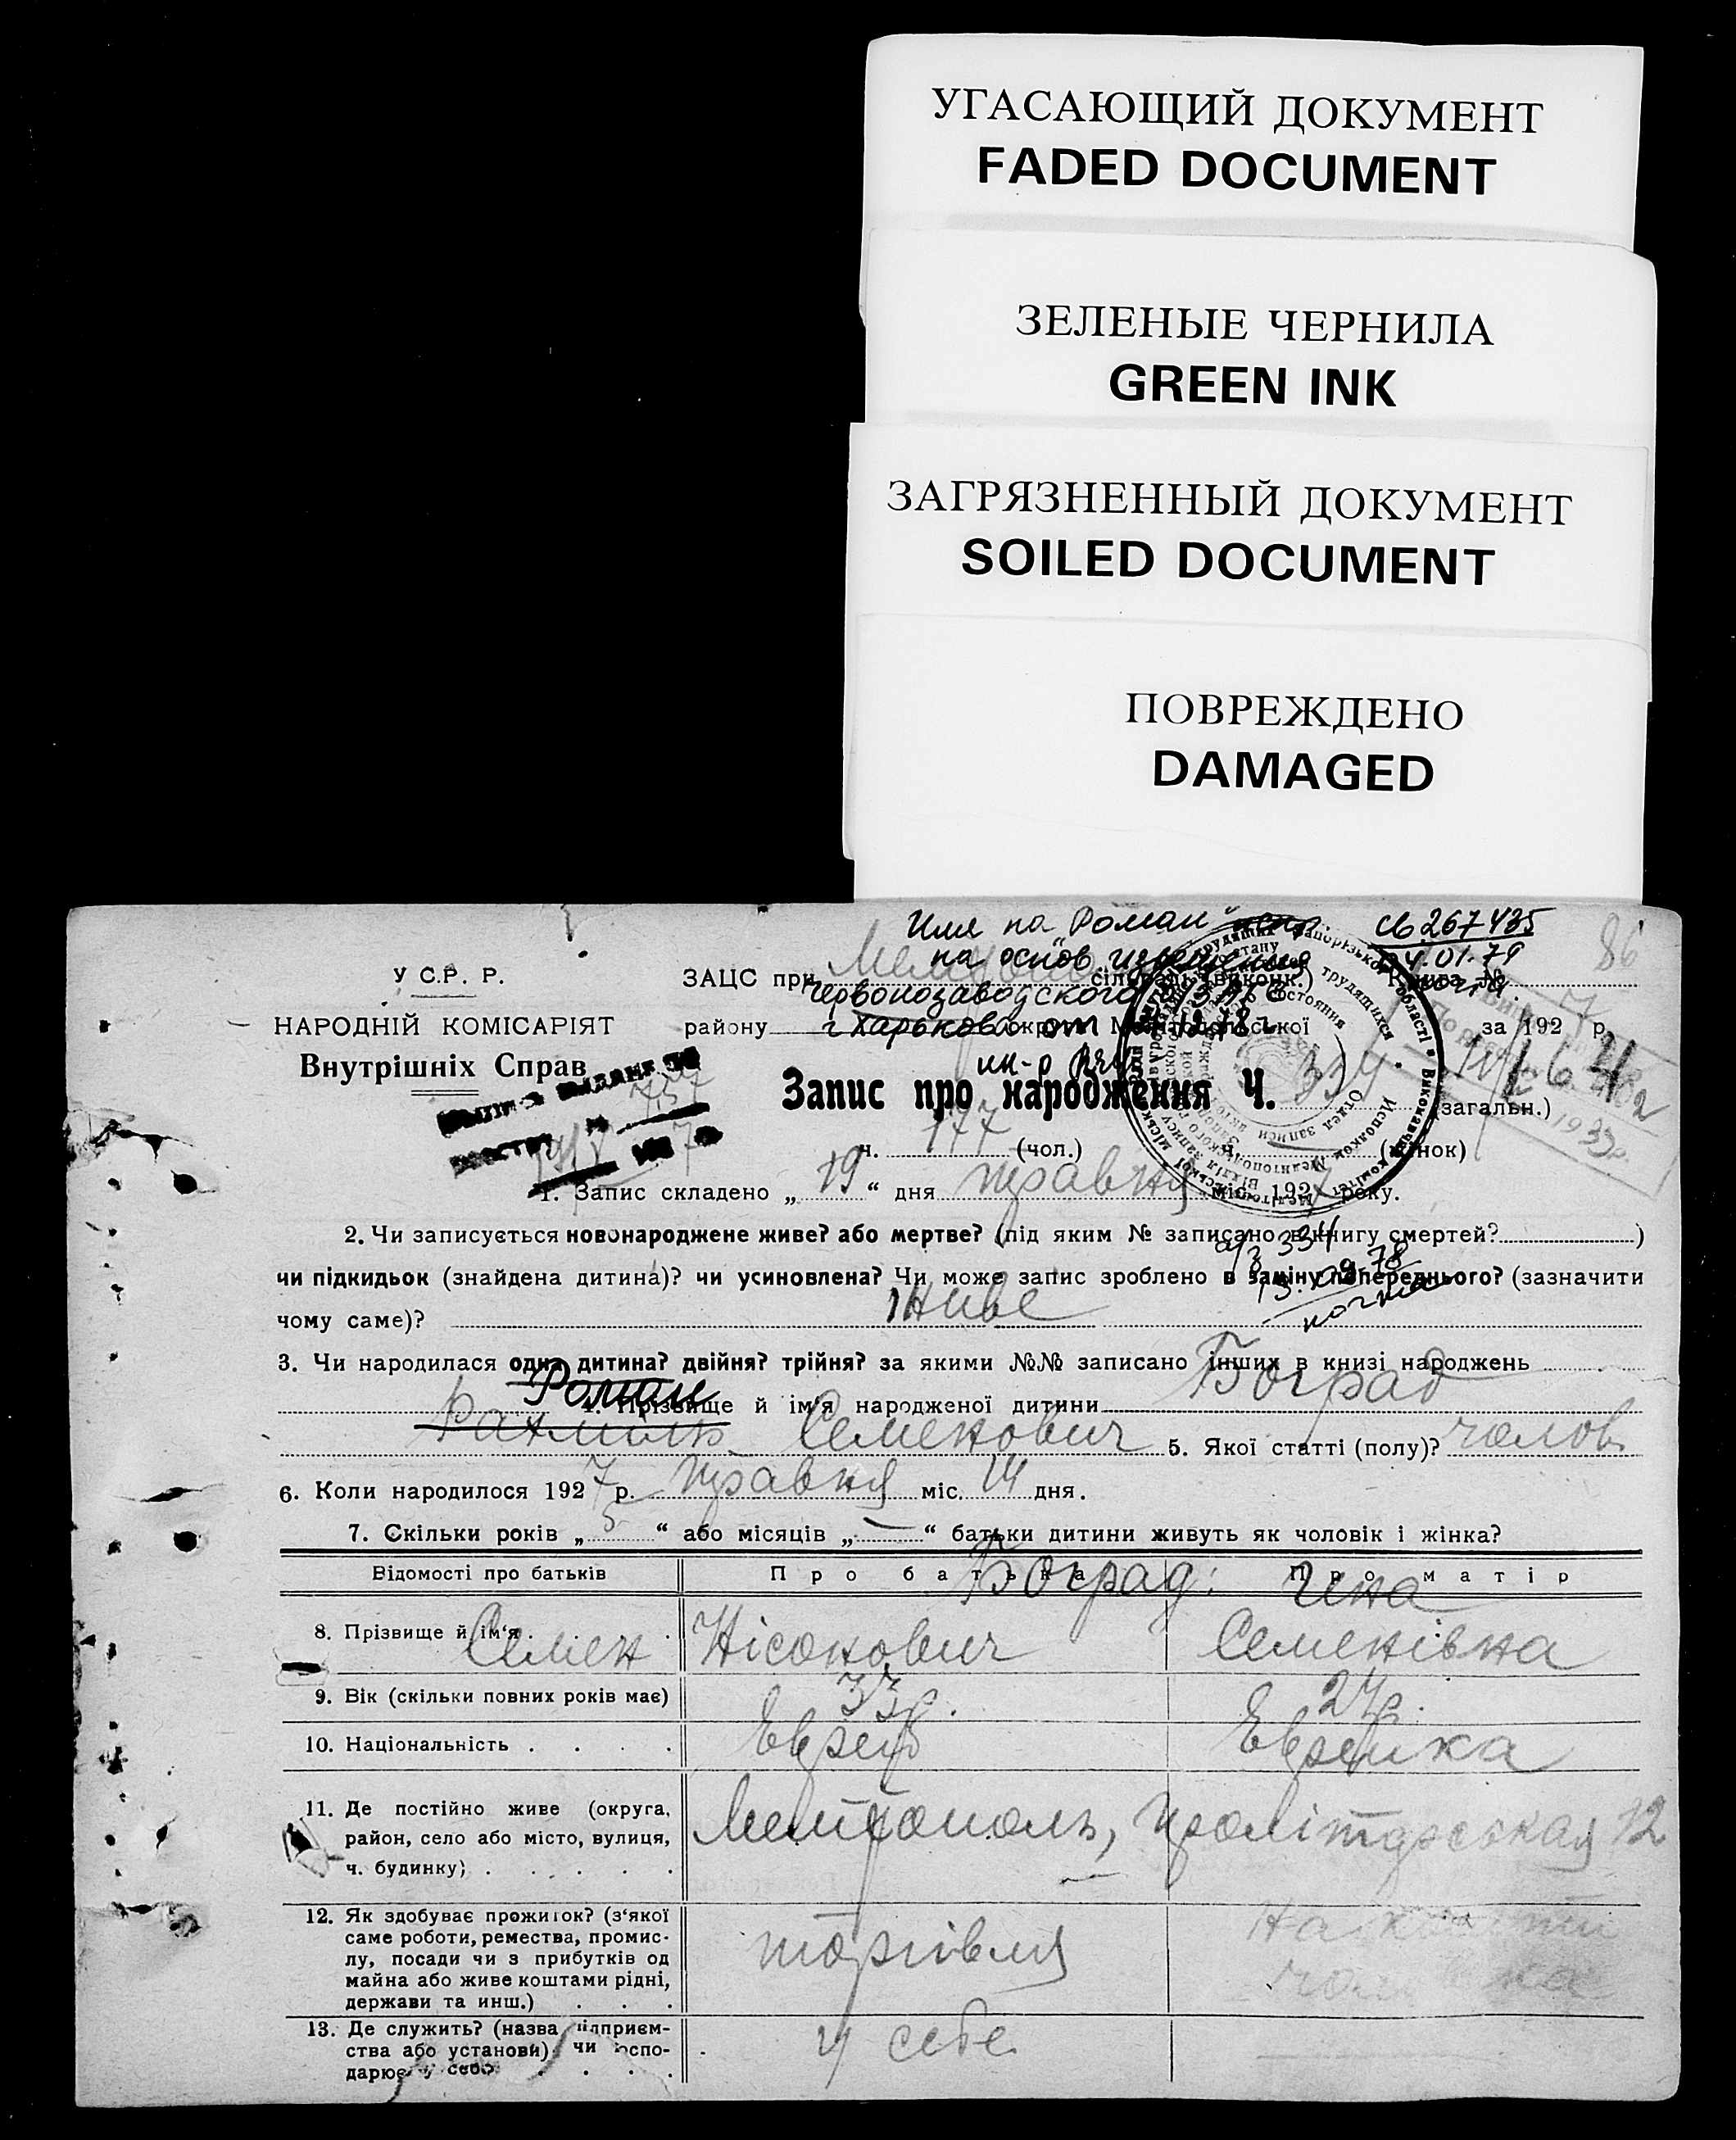 УГАСАЮЩИЙ ДОКУМЕНТ
FADED DOCUMENT
ЗЕЛЕНЫЕ ЧЕРНИЛА
GREEN INK
ЗАГРЯЗНЕННЫЙ ДОКУМЕНТ
SOILED DOCUMENT
ПОВРЕЖДЕНО
DAMAGED
Имя на "Роман" испр. св 267435
на основ извещения 24.01.79
86
У С.Р. Р. ЗАЦС при сільраді (виконк.) Книга №
Червонозаводского
НАРОДНІЙ КОМІСАРІЯТ району г Харькова от округи Мелітопольської за 1927 р.
Внутрішніх Справ
Запис про народження Ч. 334 (загальн.)
ч. 177 (чол.) (жінок)
1. Запис складено „ 19 “ дня травня міс. 1927 року.
2. Чи записується новонароджене живе? або мертве? (під яким № записано в книгу смертей? )
а/з 334
чи підкидьок (знайдена дитина)? чи усиновлена? Чи може запис зроблено в заміну попереднього? (зазначити
чому саме)? живе
3. Чи народилася одна дитина? двійня? трійня? за якими №№ записано інших в книзі народжень
Роман
4. Прізвище й ім'я народженої дитини Боград
Рахмиль Семенович 5. Якої статті (полу)? чолов.
6. Коли народилося 1927 р. травня міс. 14 дня.
7. Скільки років „ 5 “ або місяців „ — “ батьки дитини живуть як чоловік і жінка?
Відомості про батьків Про батька Про матір
Боград: Хена
8. Прізвище й ім'я Семен Нісонович Семенівна
9. Вік (скільки повних років має) 33 р. 27 р.
10. Національність Еврей Еврейка
11. Де постійно живе (округа,
район, село або місто, вулиця,
ч. будинку) Мелітополь, Пролітарськая 12
12. Як здобуває прожиток? (з'якої
саме роботи, ремества, промис-
лу, посади чи з прибутків од
майна або живе коштами рідні,
держави та инш.) торгівля
13. Де служить? (назва підприєм-
ства або установи) чи госпо-
дарює у себе у себе